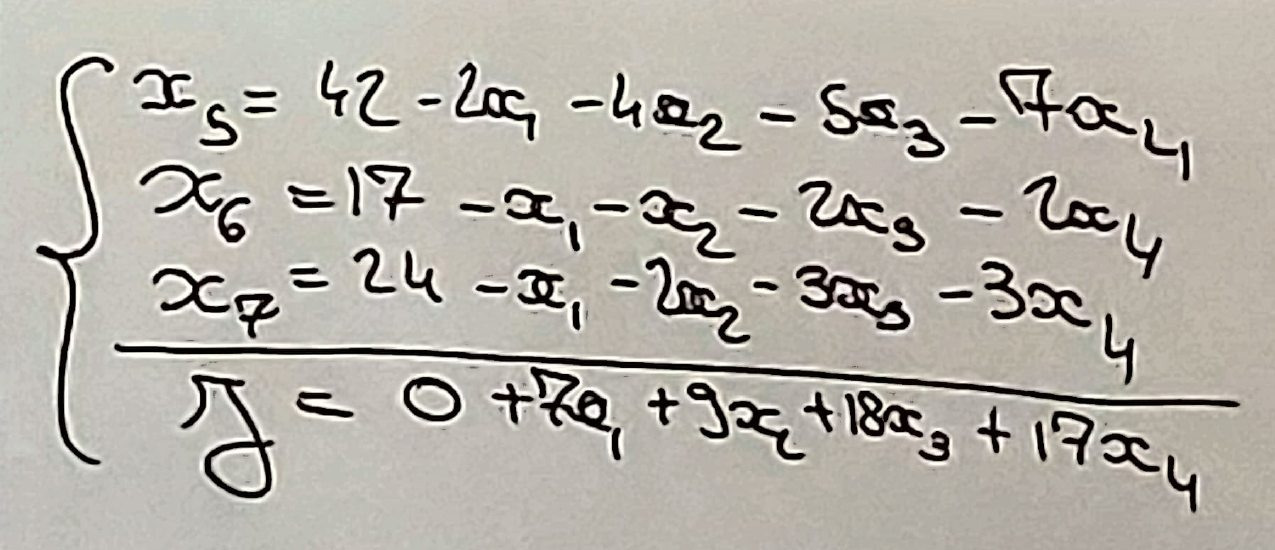 x₅ = 42 - 2x₁ - 4x₂ - 5x₃ - 7x₄
x₆ = 17 - x₁ - x₂ - 2x₃ - 2x₄
x₇ = 24 - x₁ - 2x₂ - 3x₃ - 3x₄
y = 0 + 7x₁ + 9x₂ + 18x₃ + 17x₄